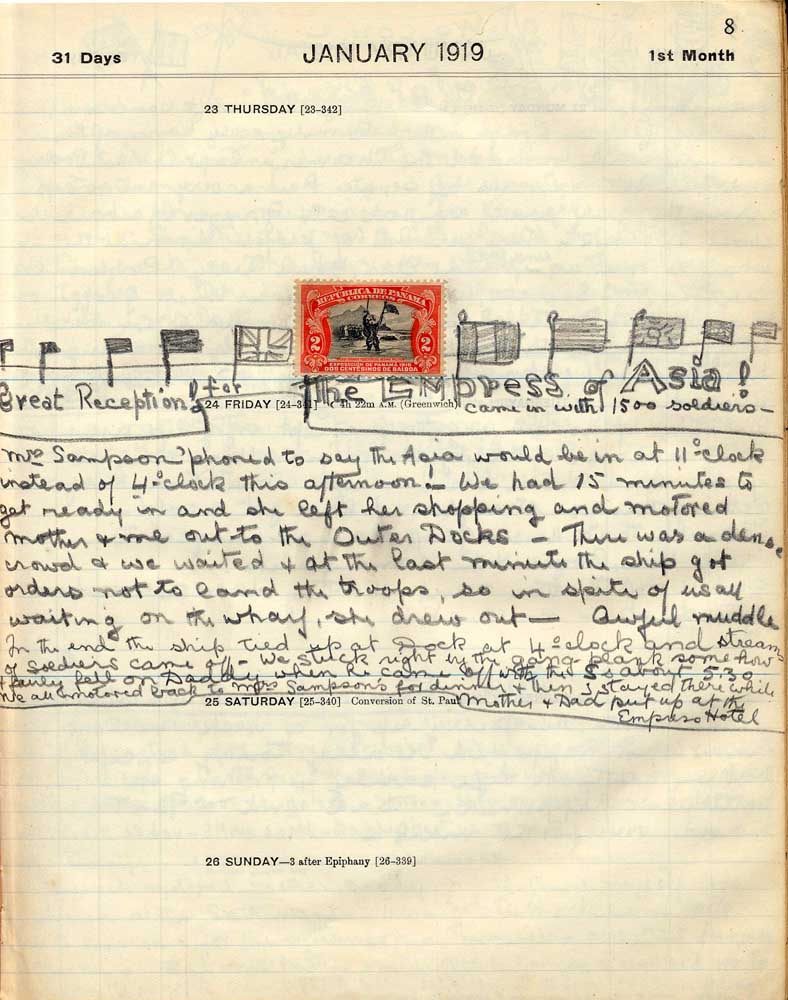 8
31 Days JANUARY 1919 1st Month
23 THURSDAY [23-342]
REPÚBLICA DE PANAMA
CORREOS
2 2
EXPOSICION DE PANAMA 1915
DOS CENTÉSIMOS DE BALBOA
Great Reception! for The Empress of Asia!
24 FRIDAY [24-341] 4h 22m A.M. (Greenwich) came in with 1500 soldiers—
Mrs Sampson 'phoned to say the Asia would be in at 11 o'clock
instead of 4 o'clock this afternoon! – We had 15 minutes to
get ready in and she left her shopping and motored
mother & me out to the Outer Docks – There was a dense
crowd & we waited & at the last minute the ship got
orders not to land the troops, so in spite of us all
waiting on the wharf, she drew out — Awful muddle
In the end the ship tied up at Dock at 4 o'clock and streams
of soldiers came off – We stuck right by the gang plank somehow
& fairly fell on Daddy when he came off with the about 5.30
We all motored back to Mrs Sampson's for dinner & then I stayed there while
25 SATURDAY [25-340] Conversion of St. Paul Mother & Dad put up at the
Empress Hotel
26 SUNDAY—3 after Epiphany [26-339]